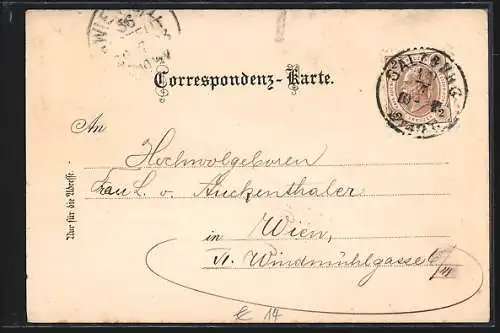 WIEN
Correspondenz-Karte.
SALZBURG
STADT
An
Hochwolgeboren
Frau L. v. Auckenthaler
in Wien,
VI. Windmühlgasse
Nur für die Adresse.
14